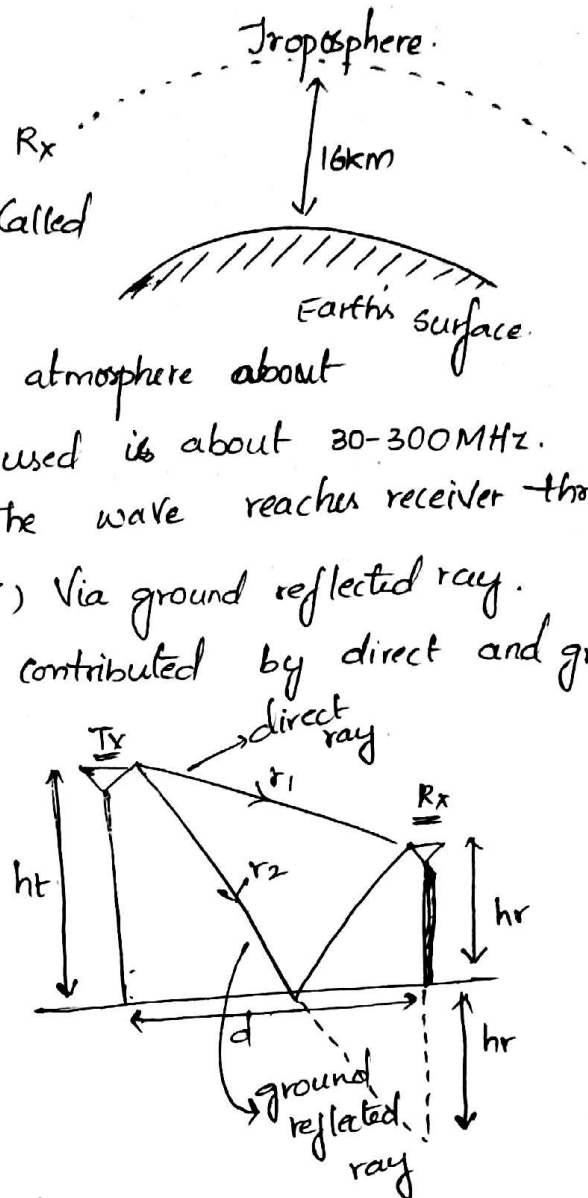 Troposphere.
Rx
16km
Called
Earth's surface.
atmosphere about
used is about 30-300MHz.
he wave reaches receiver thr
) Via ground reflected ray.
contributed by direct and gr
direct ray
Tx
r1
Rx
ht
r2
hr
d
hr
ground reflected ray